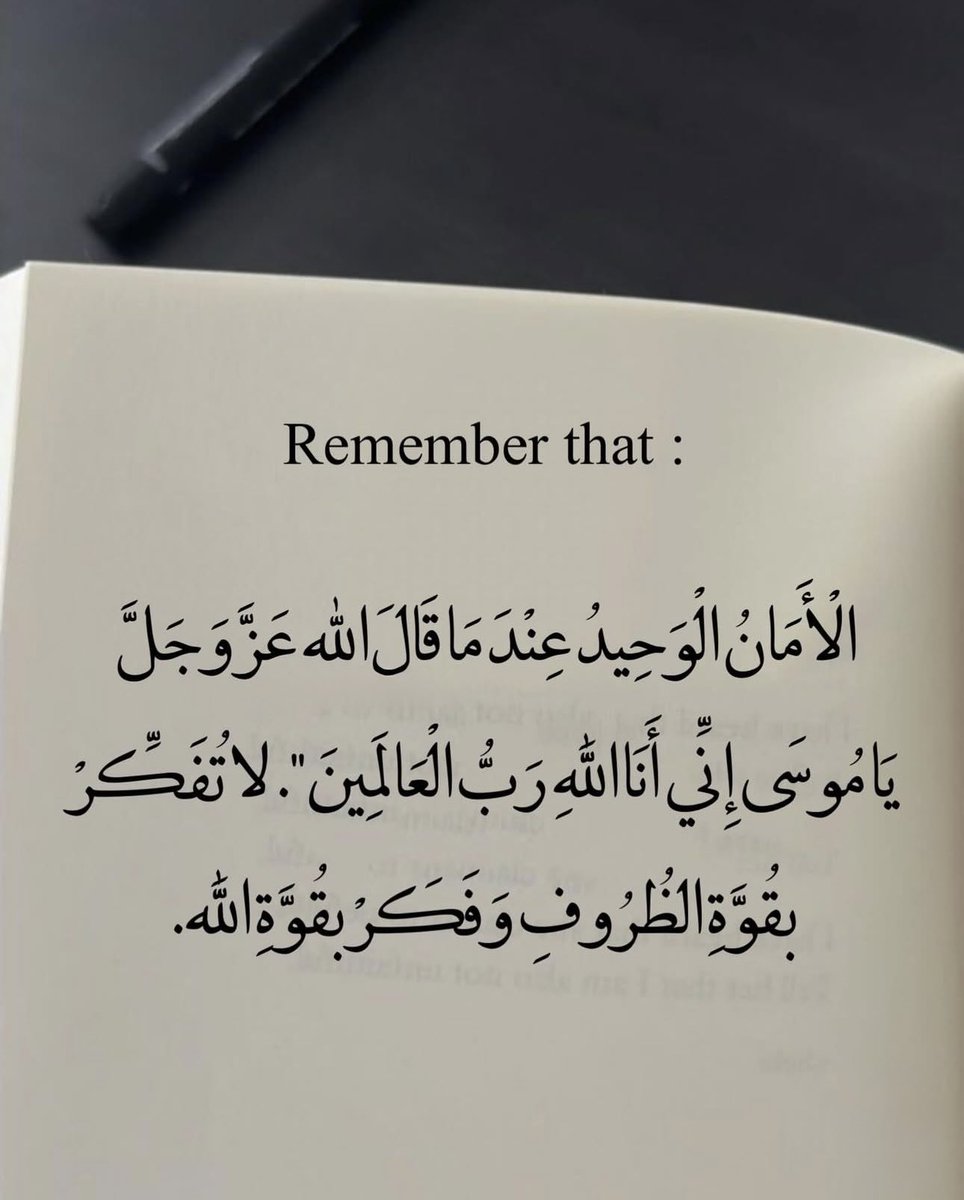 Remember that :
الْأَمَانُ الْوَحِيدُ عِنْدَمَا قَالَ الله عَزَّ وَجَلَّ
يَا مُوسَى إِنِّي أَنَا اللهِ رَبُّ الْعَالَمِينَ". لا تُفَكِّرْ
بِقُوَّةِ الظُّرُوفِ وَفَكَرْ بِقُوَّةِ الله.